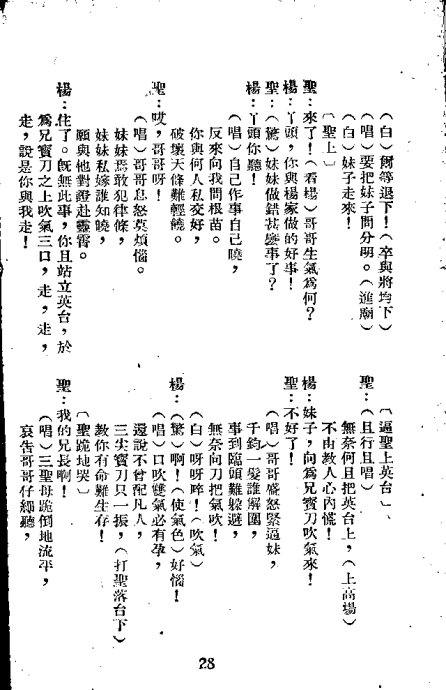 （白）爾等退下！（卒與將均下）
（唱）要把妹子問分明。（進廟）
（白）妹子走來！
〔聖上〕
聖：來了！（看楊）哥哥生氣爲何？
楊：丫頭，你與楊家做的好事！
聖：（驚）妹妹做錯甚麽事了？
楊：丫頭你聽！
（唱）自己作事自己曉，
反來向我問根苗。
你與何人私交好，
破壞天條難輕饒。
聖：哎，哥哥呀！
（唱）哥哥息怒莫煩惱。
妹妹焉敢犯律條，
妹妹私嫁誰知曉，
願與他對證赴靈霄。
楊：住了。旣無此事，你且站立英台，於
爲兄寶刀之上吹氣三口，走，走，
走，說是你與我走！
〔逼聖上英台〕、
聖：（且行且唱）
無奈何且把英台上，（上高場）
不由教人心內慌！
楊：妹子，向爲兄寶刀吹氣來！
聖：不好了！
（唱）哥哥盛怒緊逼妹，
千鈞一髮誰解圍，
事到臨頭難躲避，
無奈向刀把氣吹！
（白）呀呀啐！（吹氣）
楊：（驚）啊！（使氣色）好惱！
（唱）一口吹雙氣必有孕，
還說不曾配凡人，
三尖寶刀只一振，（打聖落台下）
教你有命難生存！
〔聖跪地哭〕
聖：我的兄長啊！
（唱）三聖母跪倒地流平，
哀告哥哥仔細聽，
28